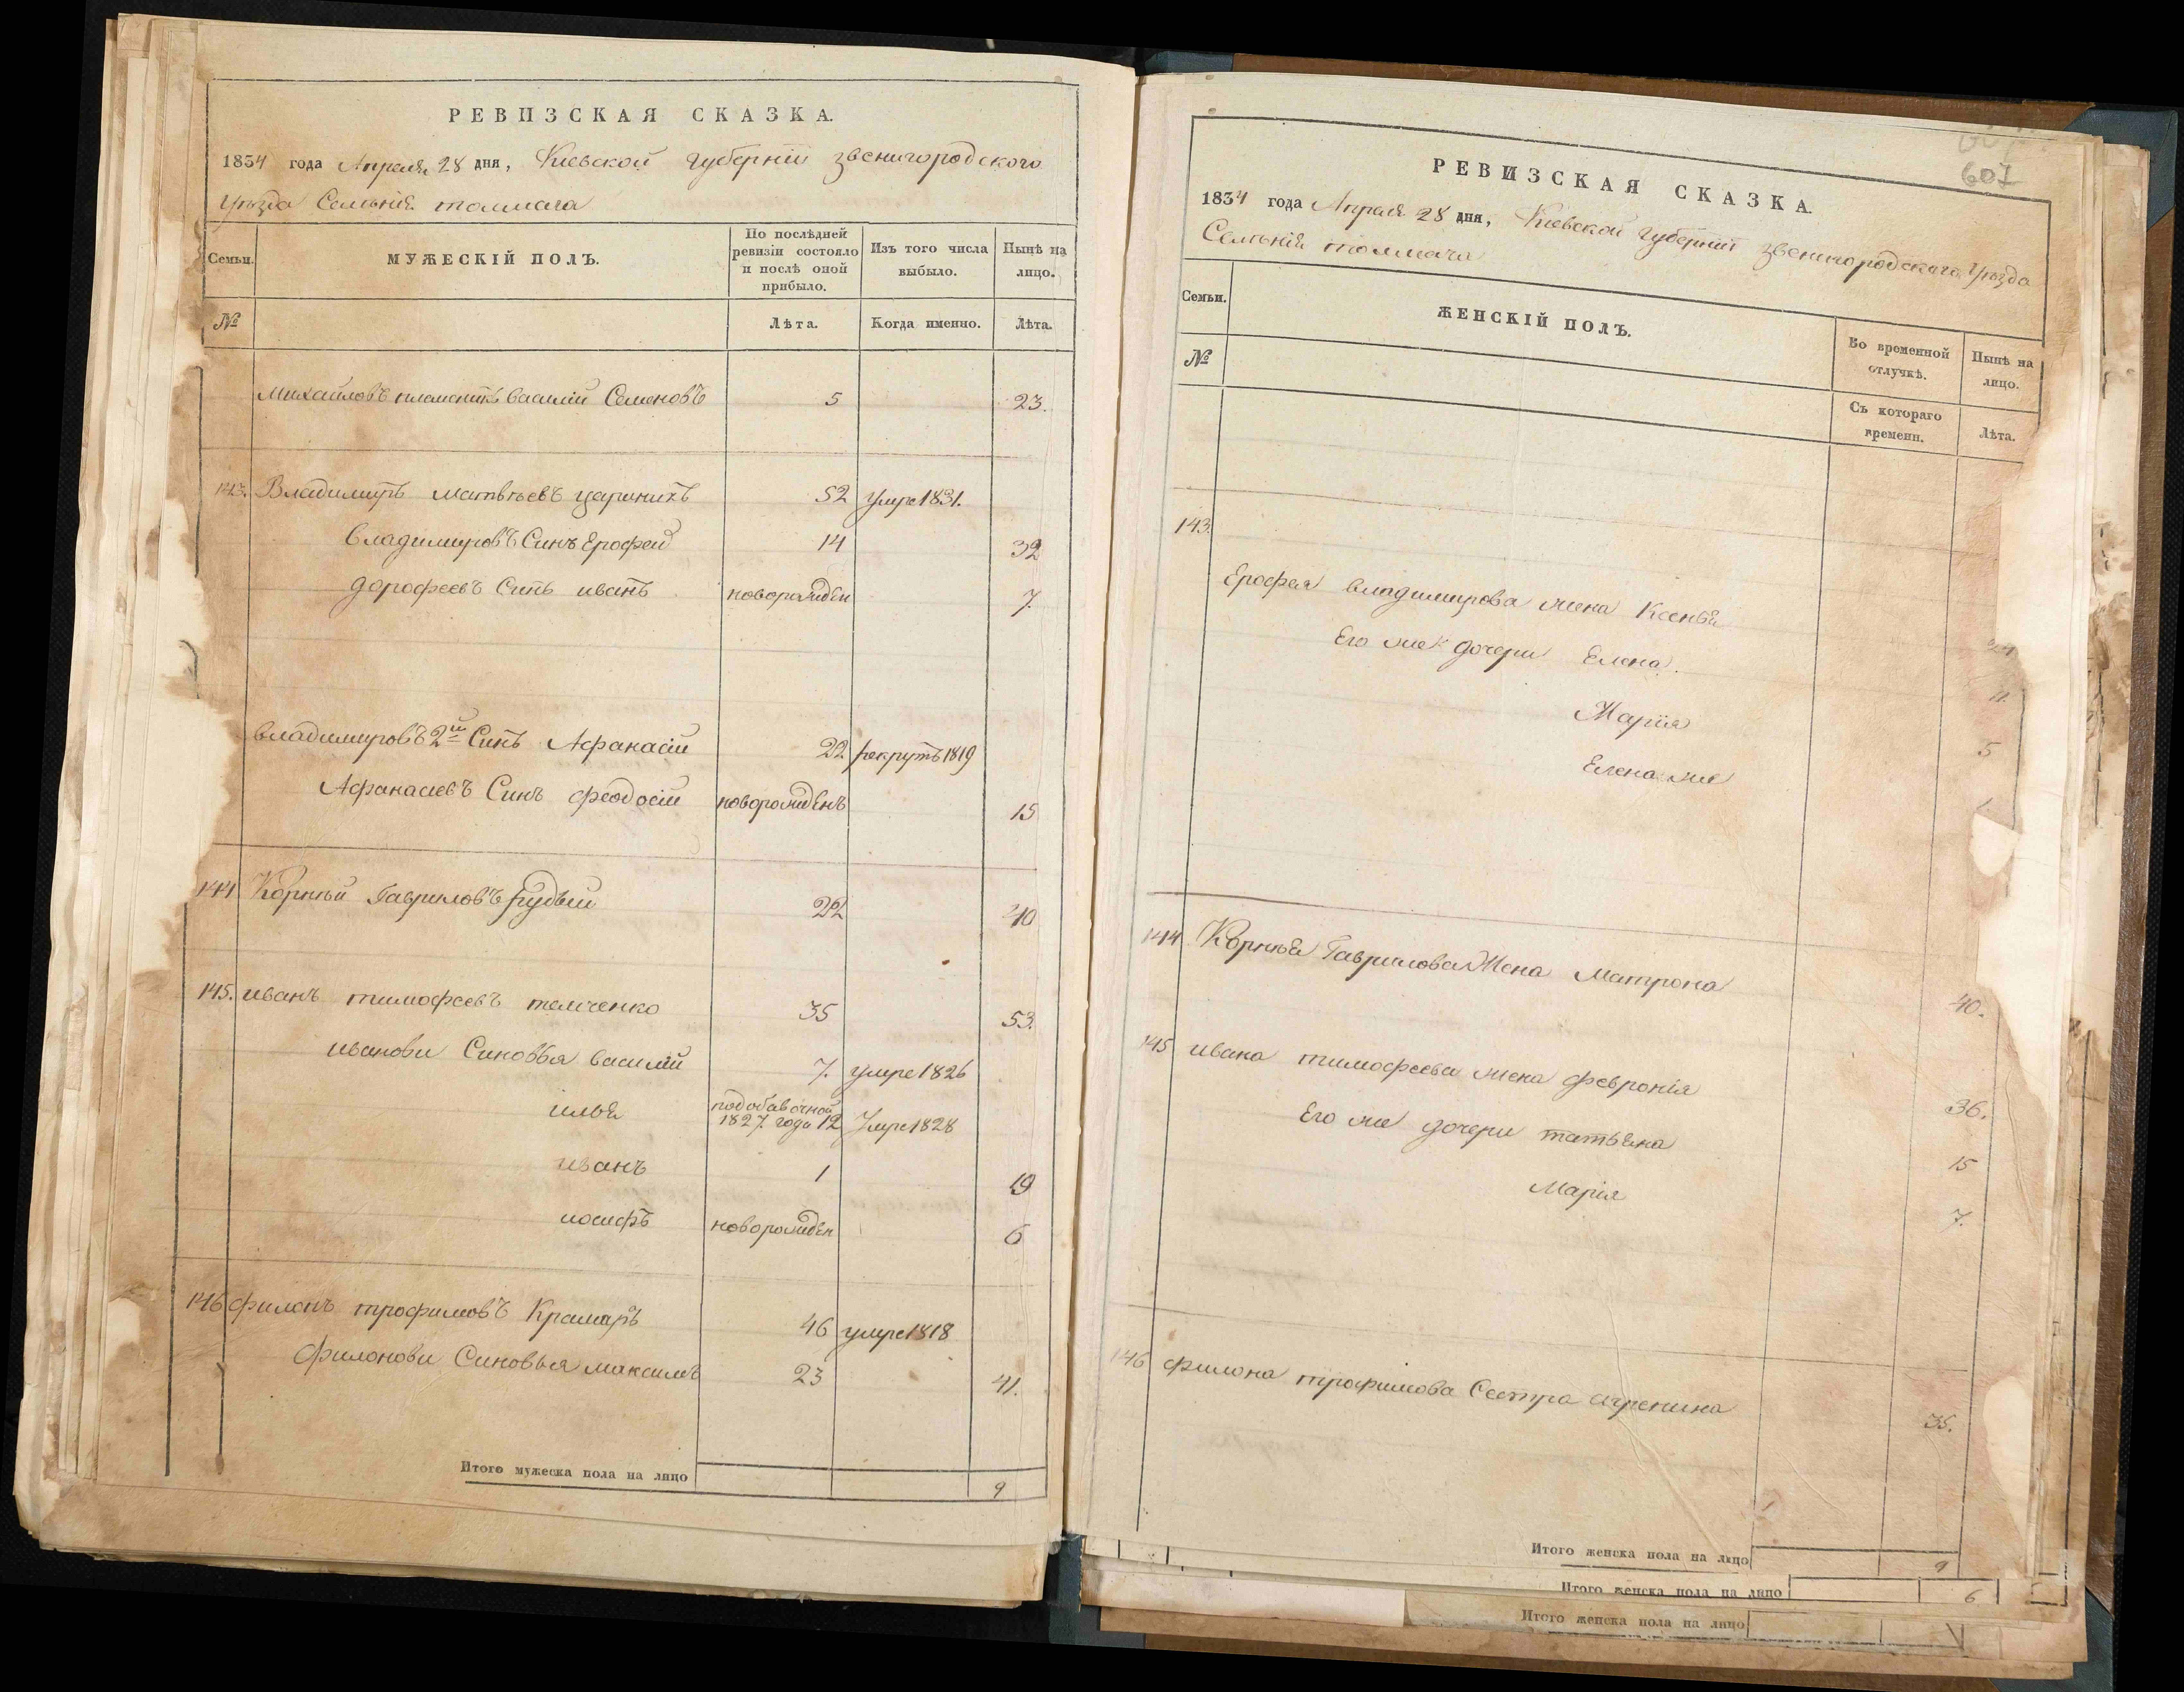 РЕВИЗСКАЯ СКАЗКА.
1834 года Апреля 28 дня, Киевской губернiи звенигородского
уѣзда Селенiя толмача
Семьи.
МУЖЕСКIЙ ПОЛЪ.
По послѣдней ревизiи состояло и послѣ оной прибыло.
Изъ того числа выбыло.
Нынѣ на лицо.
№
Лѣта.
Когда именно.
Лѣта.
михайловъ племеникъ василiй Семеновъ 5 23.
143. Владимиръ матвѣевъ 52 умре 1831.
владимировъ Синъ Ерофей 14 32
дорофеевъ Синъ иванъ новорожден 7.
владимировъ 2й Синъ Афанасiй 22 рекрутъ 1819
Афанасиевъ Синъ феодосiй новорожденъ 15
144 Корнѣй Гавриловъ рудый 22 40
145. иванъ тимофеевъ темченко 35 53.
иванови Синовья василiй 7. умре 1826
илья
подобавочной
1827 года 12 Умре 1828
иванъ 1 19
иосифъ новорожден 6
146 филонъ трофимовъ Крамаръ 46 умре 1818
Филонови Синовья максимъ 23 41.
Итого мужеска пола на лицо 9
607
РЕВИЗСКАЯ СКАЗКА.
1834 года Апреля 28 дня, Киевской губернiи звенигородскаго Уѣзда
Селенiя толмача
Семьи.
ЖЕНСКIЙ ПОЛЪ.
Во временной отлучкѣ.
Нынѣ на лицо.
№
Съ котораго времени.
Лѣта.
143.
Ерофея владимирова жена Ксенья
Его же дочери Елена. 11.
Марiя 5
Елена же
144 Корнѣя Гаврилова Жена Матрона 40.
145 ивана тимофеева жена февронiя 36.
Его же дочери татьяна 15
Марiя 7.
146 филона трофимова Сестра 35.
Итого женска пола на лицо 9
Итого женска пола на лицо 6
Итого женска пола на лицо